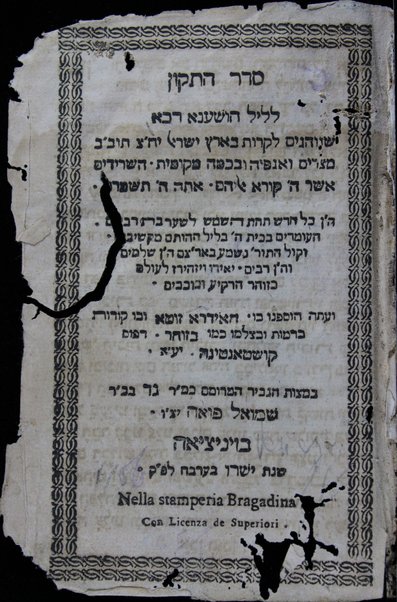 סדר התקון
לליל הושענא רבא
שנוהגים לקרות בארץ ישראל יה״צ תוב״ב
מצרים ואנפיה ובכמה מקומות · השרידים
אשר ה׳ קורא אליהם · אתה ה׳ תשמרם ·
ה׳ן כל חדש תחת השמש לשער בת רבים ·
העומדים בבית ה׳ בליל החותם מקשיבים ·
וקול התור נשמע באר״צם ה׳ן שלמים
וה׳ן רבים · יאירו ויזהירו לעולם
כזוהר הרקיע וככבים ·
ועתה הוספנו בו · האידרא זוטא ובו קודורות
ברמות ובצלמו כמו בזוהר · דפוס
קושטאנטינה · יע״א
במצות הגביר המרומם כמ״ר גד בכ״ר
שמואל פואה יצ״ו ·
בויניציאה
שנת ישרו בערבה לפ״ק ·
Nella stamperia Bragadina
Con Licenza de Superiori .